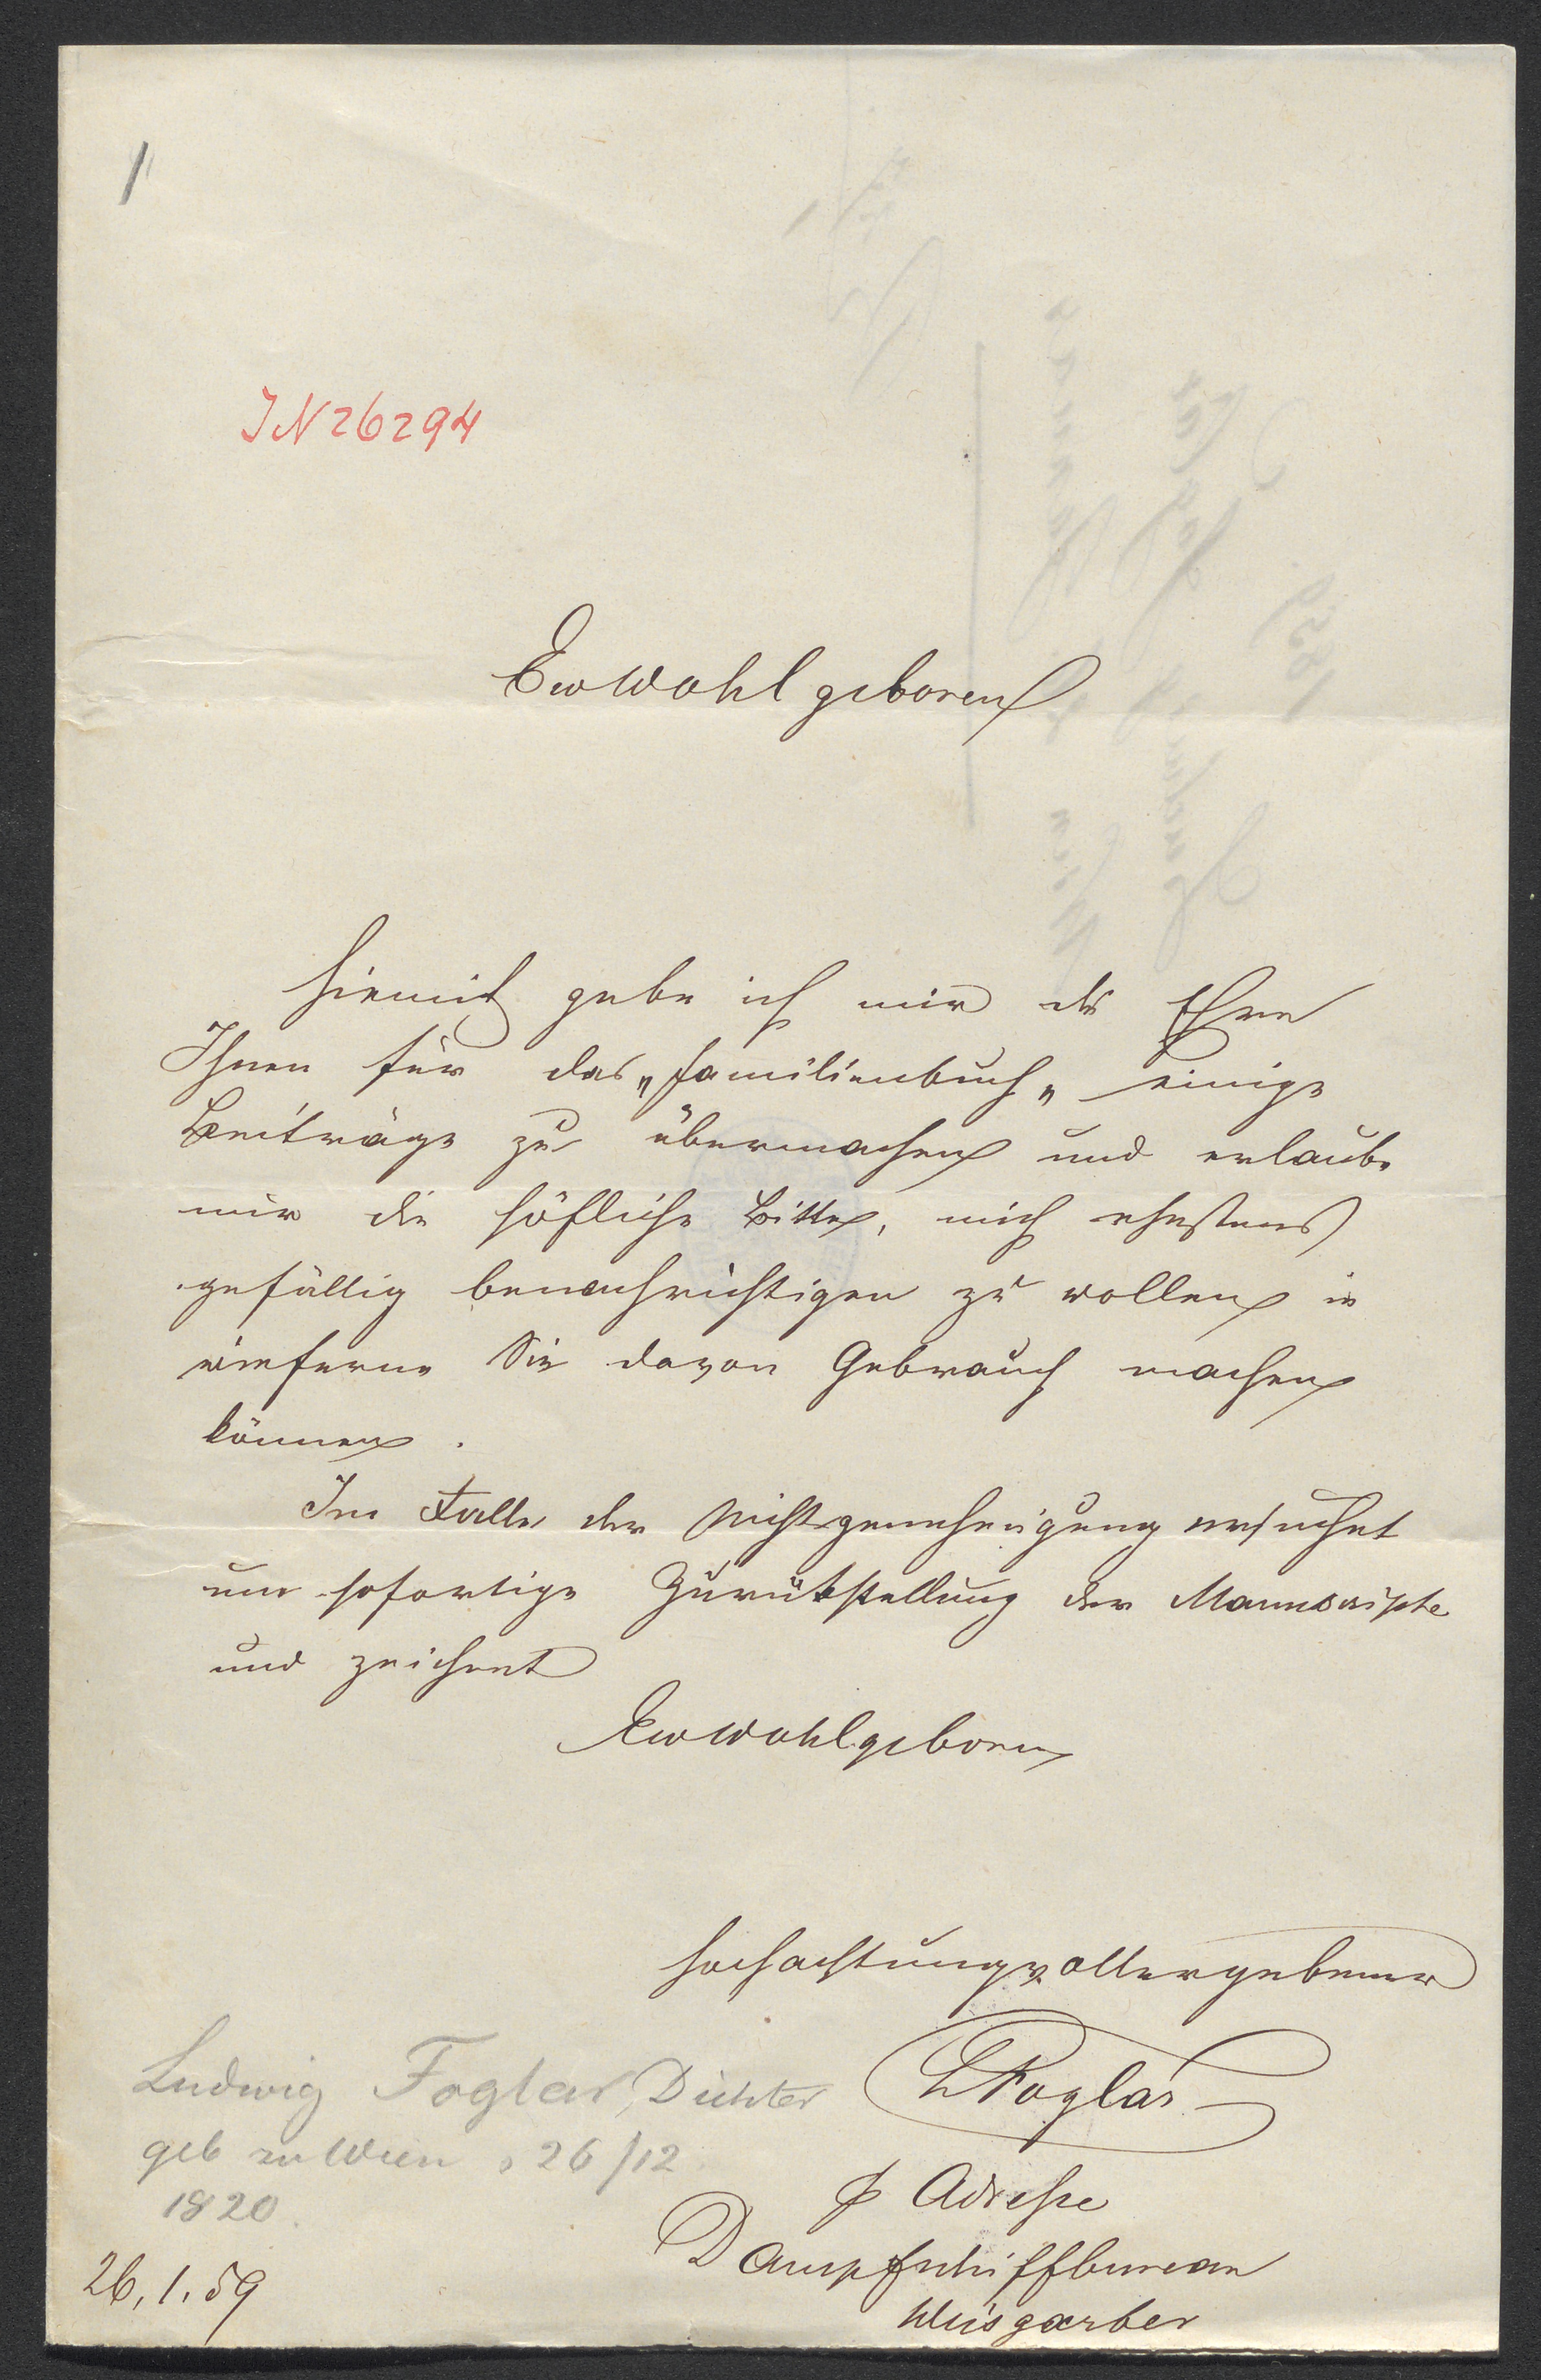 1
IN 26294
Ew Wohlgeboren
Hiemit gebe ich mir die Ehre
Ihnen für das „Familienbuch„ einige
Beiträge zu übermachen und erlaube
mir die höfliche Bitte, mich ehestens
gefällig benachrichtigen zu wollen in
wieferne Sie davon Gebrauch machen
können.
Im Falle der Nichtgenehmigung ersuchet
um sofortige Zurückstellung der Manuscripte
und zeichnet
Ew Wohlgeboren
hochachtungsvoll ergebener
LFoglár
Ludwig Foglar, Dichter
geb zu Wien 26/12
1820.
Adresse
Dampfschiffbureau
Weisgarber
26.1.59